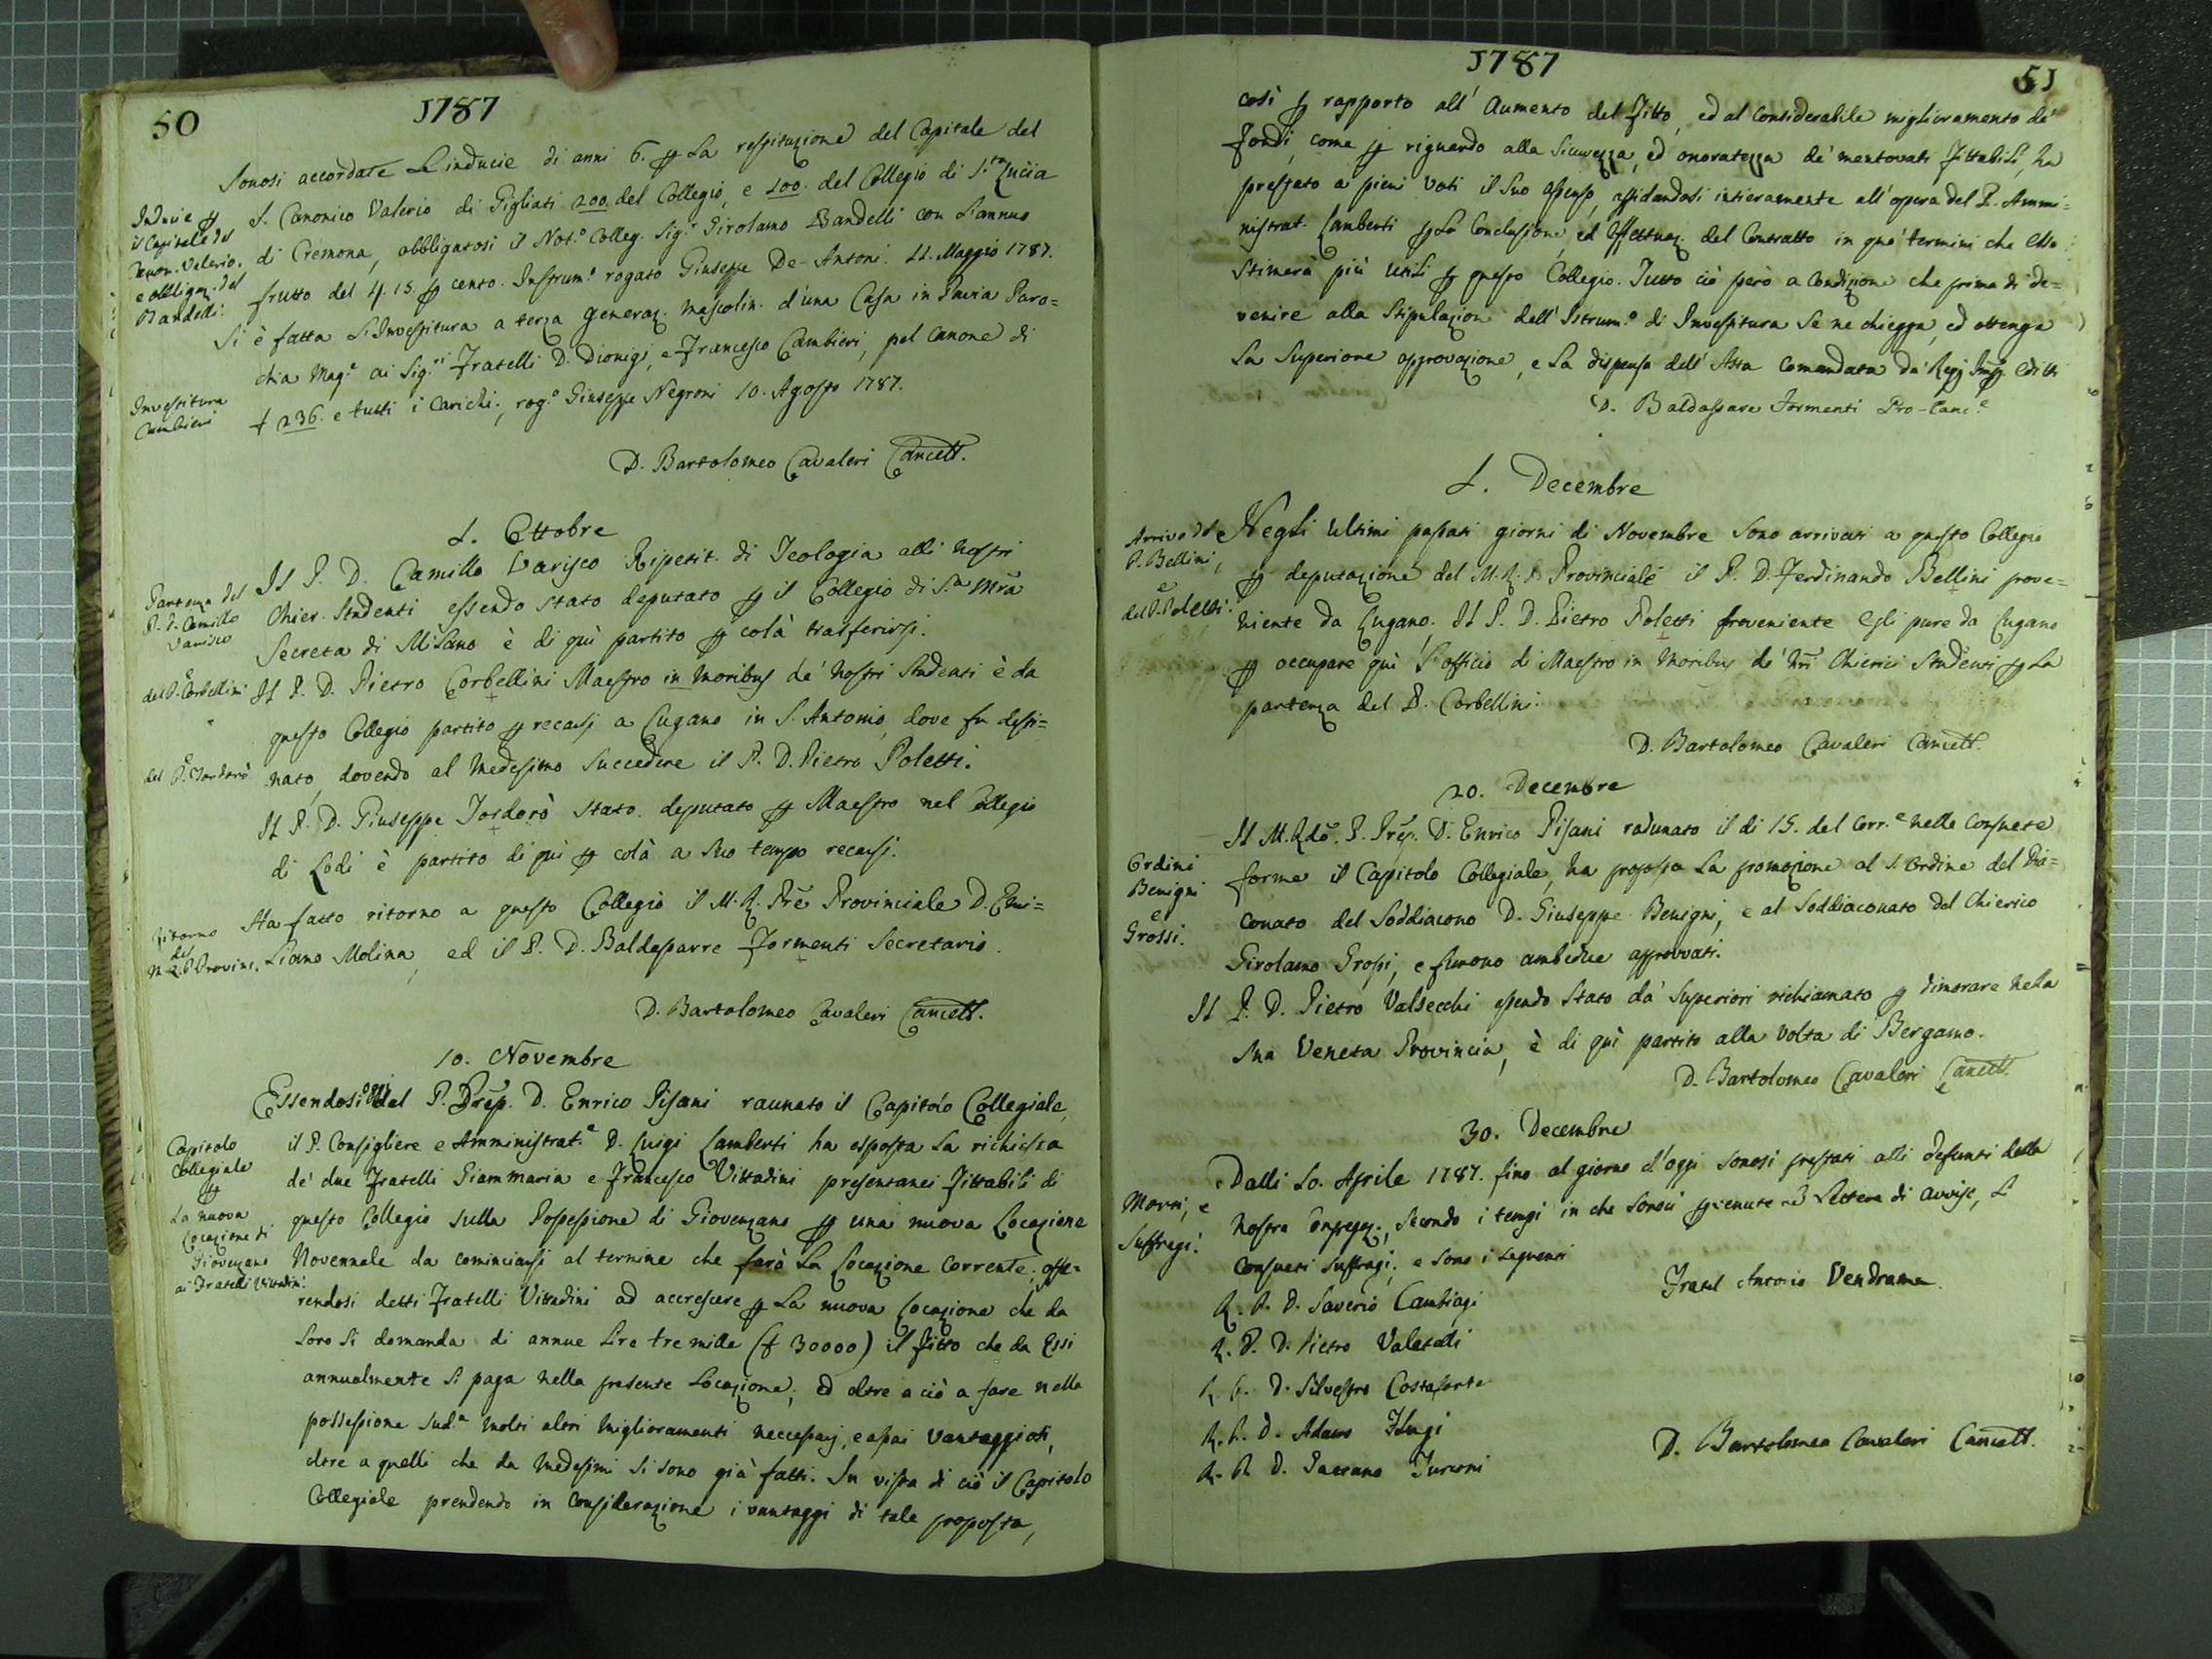 50
1787
Sonosi accordate L'inducie di anni 6. per La restituzione del Capitale del
S. Canonico Valerio di Gigliati 200. del Collegio, e 100. del Collegio di S.ta Lucia
di Cremona, obbligatosi il Not.o Colleg. Sig.r Girolamo Bandelli con L'annuo
frutto del 4.15. per cento. Instrum.o rogato Giuseppe De-Antoni. 11. Maggio 1787.
Inducie per
il Capitale del
Canon. Valerio,
e obbligaz. del
Bandelli.
Si è fatta L'Investitura a terza generaz. mascolin. d'una Casa in Pavia Paro=
chia Mag.e ai Sig.ri Fratelli D. Dionigi, e Francesco Cambieri, pel Canone di
£ 236. e tutti i Carichi., rog.o Giuseppe Negroni 10. Agosto 1787.
Investitura
Cambieri
D. Bartolomeo Cavaleri Cancell.
1. Ottobre
Il P. D. Camillo Varisco Ripetit. di Teologia alli nostri
Chier. Studenti essendo stato deputato per il Collegio di S.a Mra
Secreta di Milano è di quì partito per colà trasferirsi.
Partenza del
P. D. Camillo
Varisco
Il P. D. Pietro Corbellini Maestro in moribus de' nostri Studenti è da
questo Collegio partito per recarsi a Lugano in S. Antonio, dove fu desti=
nato, dovendo al medesimo Succedere il P. D. Pietro Poletti.
e
del P. Corbellini
Il P. D. Giuseppe Tordorò stato deputato per Maestro nel Collegio
di Lodi è partito di quì per colà a suo tempo recarsi.
e
del P. Tordorò
Ha fatto ritorno a questo Collegio il M. R. Pre Provinciale D. Emi=
Liano Molina, ed il P. D. Baldassarre Formenti Secretario.
Ritorno
del
M. R. P. Provinc.
D. Bartolomeo Cavaleri Cancell.
10. Novembre
Essendosi oggi dal P. Prep. D. Enrico Pisani raunato il Capitolo Collegiale,
il P. Consigliere e Amministrat.e D. Luigi Lamberti ha esposta La richiesta
de' due Fratelli Giammaria e Francesco Vittadini presentanei Fittabili di
questo Collegio sulla Possessione di Giovenzano per una nuova Locazione
Novennale da cominciarsi al termine che farà La Locazione Corrente; offe=
rendosi detti Fratelli Vittadini ad accrescere per La nuova Locazione che da
Loro si domanda di annue Lire tre mille (£ 30000) il fitto che da Essi
annualmente si paga nella presente Locazione; ed oltre a ciò a fare nella
possessione Sud.a molti altri miglioramenti neccessarj, e assai vantaggiosi,
oltre a quelli che da medesimi si sono già fatti. In vista di ciò il Capitolo
Collegiale prendendo in Considerazione i vantaggi di tale proposta,
Capitolo
Collegiale
per
La nuova
Locazione di
Giovenzano
ai Fratelli Vittadini.
1787
51
così per rapporto all' Aumento del Fitto, ed al Considerabile miglioramento de'
Fondi, come per riguardo alla Sicurezza, ed onoratezza de' mentovati Fittabili, ha
prestato a pieni Voti il Suo assenso, affidandosi intieramente all' opera del P. Ammi=
nistrat. Lamberti per La Conclusione, ed Effettuaz. del Contratto in que' termini che Esso
Stimerà più utili per questo Collegio. Tutto ciò però a Condizione che prima di de=
venire alla Stipulazione dell' Istrum.o di Investitura Se ne chiegga, ed ottenga
La Superiore approvazione, e La dispensa dell' Asta Comandata da' Regj Imp. Editti
D. Baldassare Formenti Pro-Canc.e
1. Decembre
Negli Ultimi passati giorni di Novembre Sono arrivati a questo Collegio
per deputazione del M. R. P. Provinciale il P. D. Ferdinando Bellini prove=
niente da Lugano; Il P. D. Pietro Poletti proveniente Egli pure da Lugano
per occupare quì L'officio di Maestro in moribus de' Nri Chierici Studenti per La
partenza del P. Corbellini.
Arrivo del
P. Bellini,
e
del P. Poletti.
D. Bartolomeo Cavaleri Cancell.
20. Decembre
Il M. Rdo. P. Prep. D. Enrico Pisani radunato il dì 15. del Corr.e nelle Consuete
forme il Capitolo Collegiale, ha proposta La promozione al S. Ordine del Dia=
conato del Soddiacono D. Giuseppe Benigni, e al Soddiaconato del Chierico
Girolamo Grossi, e furono ambedue approvati.
Ordini
Benigni
e
Grossi.
Il P. D. Pietro Valsecchi essendo Stato da' Superiori richiamato per dimorare nella
Sua Veneta Provincia, è di quì partito alla volta di Bergamo.
D. Bartolomeo Cavaleri Cancell.
30. Decembre
Dalli 10. Aprile 1787. fino al giorno d'oggi sonosi prestati alli defunti della
nostra Congregaz., Secondo i tempi in che Sonosi pervenute Le Lettere di avviso, L
Consueti Suffragi; e Sono i seguenti
Morti, e
Suffragi.
R. P. D. Saverio Cambiagi
Fratel Antonio Vendrame.
R. P. D. Pietro
R. P. D. Silvestro
R. P. D. Adamo
R. P. D. Gaetano Turconi
D. Bartolomeo Cavaleri Cancell.